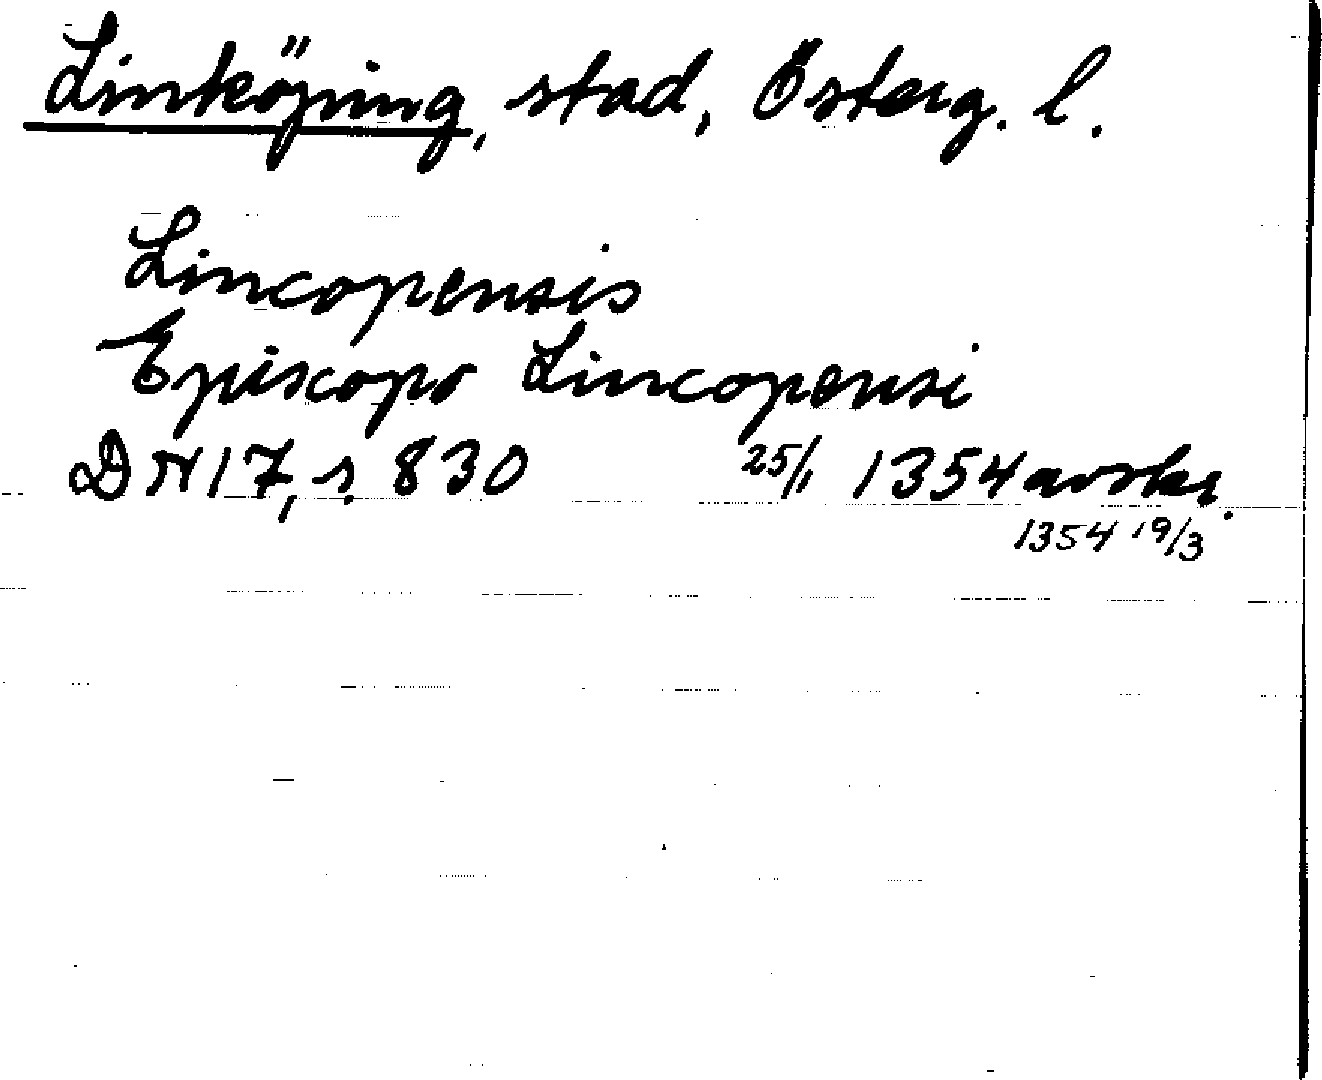 Linköping, stad, Österg. l.
Lincopensis
Episcopo Lincopensi
DN 17, s. 830 25/1 1354 avskr.
1354 19/3